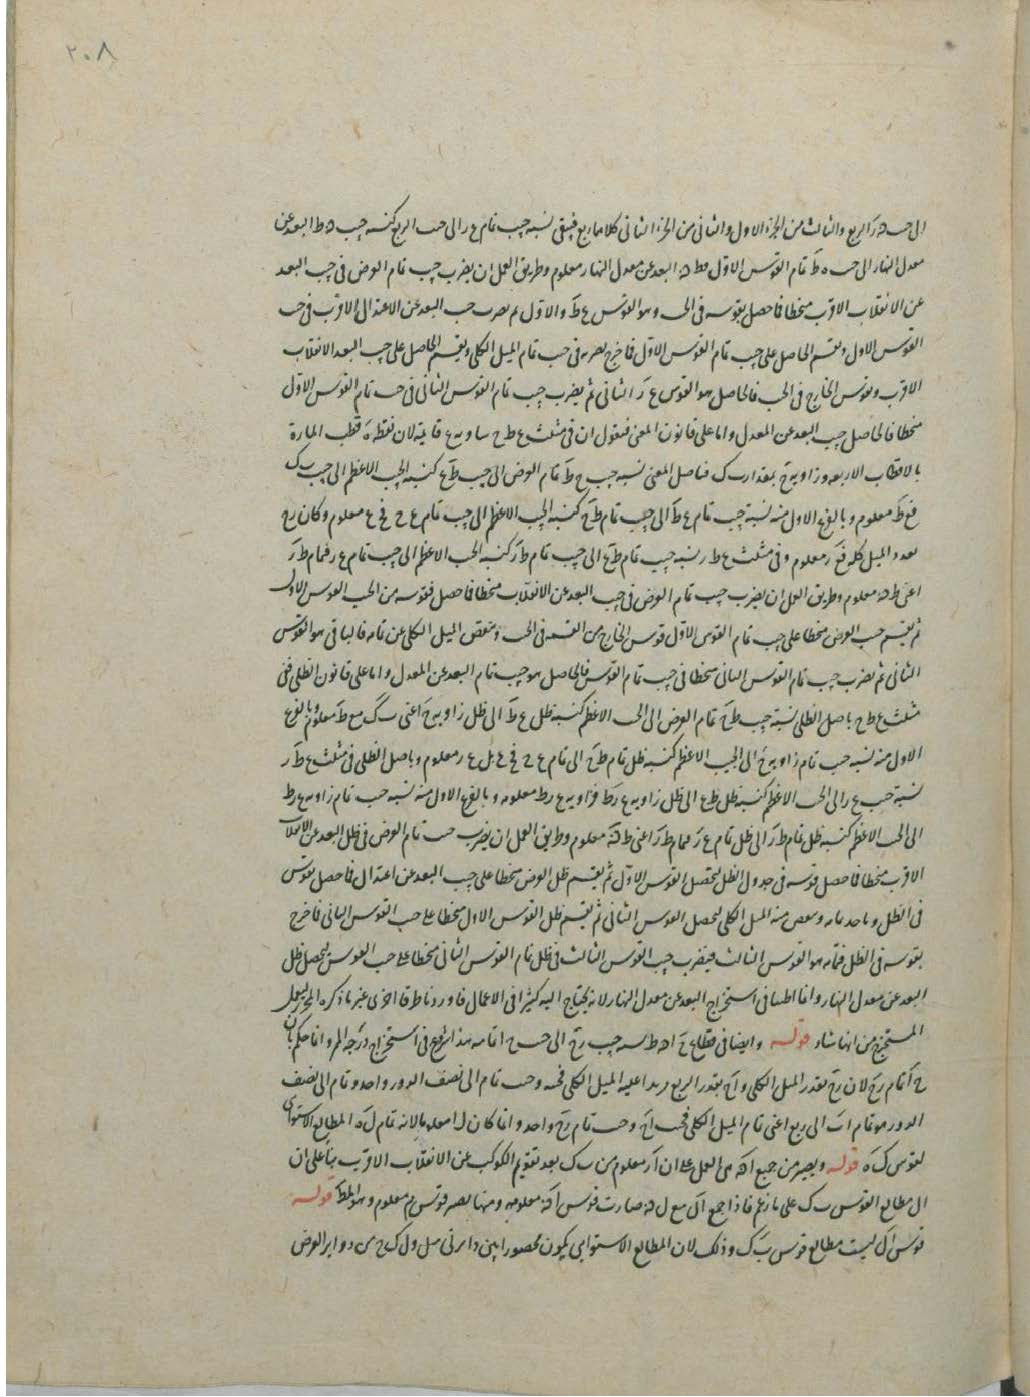 ٢٠٨
الى حـ ه ر الربع والثالث من الجزء الاول والثانى من الجزء الثانى كلاهما ربع فبقى نسبة جيب تمام ع ر الى حب الربع كنسبة جيب ه ط البعد عن
معدل النهار الى حب ه ط تمام القوس الاول فط ه البعد عن معدل النهار معلوم وطريق العمل ان يضرب جيب تمام العرض فى جيب البعد
عن الانقلاب الاقرب منحطا فما حصل يقوسه فى الحب وهو القوس ع ط والاول ثم يضرب حب البعد عن الاعتدال الاقرب فى حب
القوس الاول ويقسم الحاصل على جيب تمام القوس الاول فما خرج يضربه فى حب تمام الميل الكلى ويقسم الحاصل على جيب البعد الانقلاب
الاقرب ويقوس الخارج فى الحب فالحاصل هو القوس ع ر الثانى ثم يضرب جيب تمام القوس الثانى فى حب تمام القوس الاول
منحطا فالحاصل جيب البعد عن المعدل واما على قانون المغنى فنقول ان فى مثلث ع ط ح زاوية ع قايمة لان نقطة ه قطب المارة
بالاقطاب الاربعة وزاوية ح بمقدار ب ك فباصل المغنى نسبة جيب ح ط تمام العرض الى جيب ط ع كنسبة الجيب الاعظم الى جيب ب ك
فع ط معلوم وبالفرع الاول منه نسبة جيب تمام ع ط الى جيب تمام ط ح كنسبة الجيب الاعظم الى جيب تمام ع ح فح ع معلوم وكان ر ح
بعد والميل كله فع ر معلوم وفى مثلث ع ط ر نسبة جيب تمام ط ع الى جيب تمام ط ر كنسبة الحب الاعظم الى جيب تمام ع ر فتمام ط ر
اعنى ط ه معلوم وطريق العمل ان يضرب جيب تمام العرض فى جيب البعد عن الانقلاب منحطا فما حصل فقوسه من الحب القوس الاول
ثم يقسم حب العرض منحطا على جيب تمام القوس الاول قوس الخارج من القسمة فى الحب وينقص الميل الكلى عن تمامه فالباقى هو القوس
الثانى ثم يضرب جيب تمام القوس الثانى منحطا فى جيب تمام القوس فالحاصل هو جيب تمام البعد عن المعدل واما على قانون الظلى ففى
مثلث ع ط ح باصل الظلى نسبة جيب ط ح تمام العرض الى الحب الاعظم كنسبة ظل ع ط الى ظل زاوية ح اعنى ب ك فع ط معلوم وبالفرع
الاول منه نسبة جيب تمام زاوية ح الى الجيب الاعظم كنسبة ظل تمام ط ح الى تمام ع ح فح ع بل ع ر معلوم وباصل الظلى فى مثلث ع ط ر
نسبة حب ع ر الى الحب الاعظم كنسبة ظل ط ع الى ظل زاوية ع ر ط فزاوية ع ر ط معلومة وبالفرع الاول منه نسبة حب تمام زاوية ع ر ط
الى الحب الاعظم كنسبة ظل تمام ط ر الى ظل تمام ع ر فتمام ط ر اعنى ط ه معلوم وطريق العمل ان يضرب حب تمام العرض فى ظل البعد عن الانقلاب
الاقرب منحطا فما حصل قوسه فى جدول الظل ليحصل القوس الاول ثم يقسم ظل العرض منحطا على جيب البعد عن اعتدال فما حصل يقوس
فى الظل وياخذ تمامه وينقص منه الميل الكلى ليحصل القوس الثانى ثم يقسم ظل القوس الاول منحطا على حب القوس الثانى فما خرج
يقوسه فى الظل فتمامه هو القوس الثالث فيضرب جيب القوس الثالث فى ظل تمام القوس الثانى منحطا على حب القوس ليحصل ظل
البعد عن معدل النهار وانما اطنبنا فى استخراج البعد عن معدل النهار لانه يحتاج اليه كثيرا فى الاعمال فاوردنا طرقا اخرى غير ما ذكره المحرر ليعمل
المستخرج من ايها شاء قوله وايضا فى قطاع ح ا ه ط نسبة جيب ر ح الى حب ح ا تمامه هذا شروع فى استخراج درجة الممر وانما حكم بان
ح ا تمام ر ح لان ر ح بقدر الميل الكلى و ا ح بقدر الربع مزيدا عليه الميل الكلى وحب تمام الى نصف الدور واحد وتمام الى نصف
الدور هو تمام ا ب الى ربع اعنى تمام الميل الكلى فحب ا ح وحب تمام ر ح واحد وانما كان ل ا معلوما لانه تمام ل ه المطالع الاستوائى
لقوس ك ه قوله ويصير من جميع ا ه من العمل على ان ا ر معلوم من ب ك بعد تقويم الكوكب عن الانقلاب الاقرب بناء على ان
ال مطالع القوس ب ك على ما زعم فاذا جمع ا ل مع ل ه صارت قوس ا ه معلومة ومنها يصير قوس م معلوم وهو المط قوله
قوس ا ل ليست مطالع قوس ب ك وذلك لان المطالع الاستوايى يكون محصورا بين دايرتى ميل و ل ك ح من دواير العرض